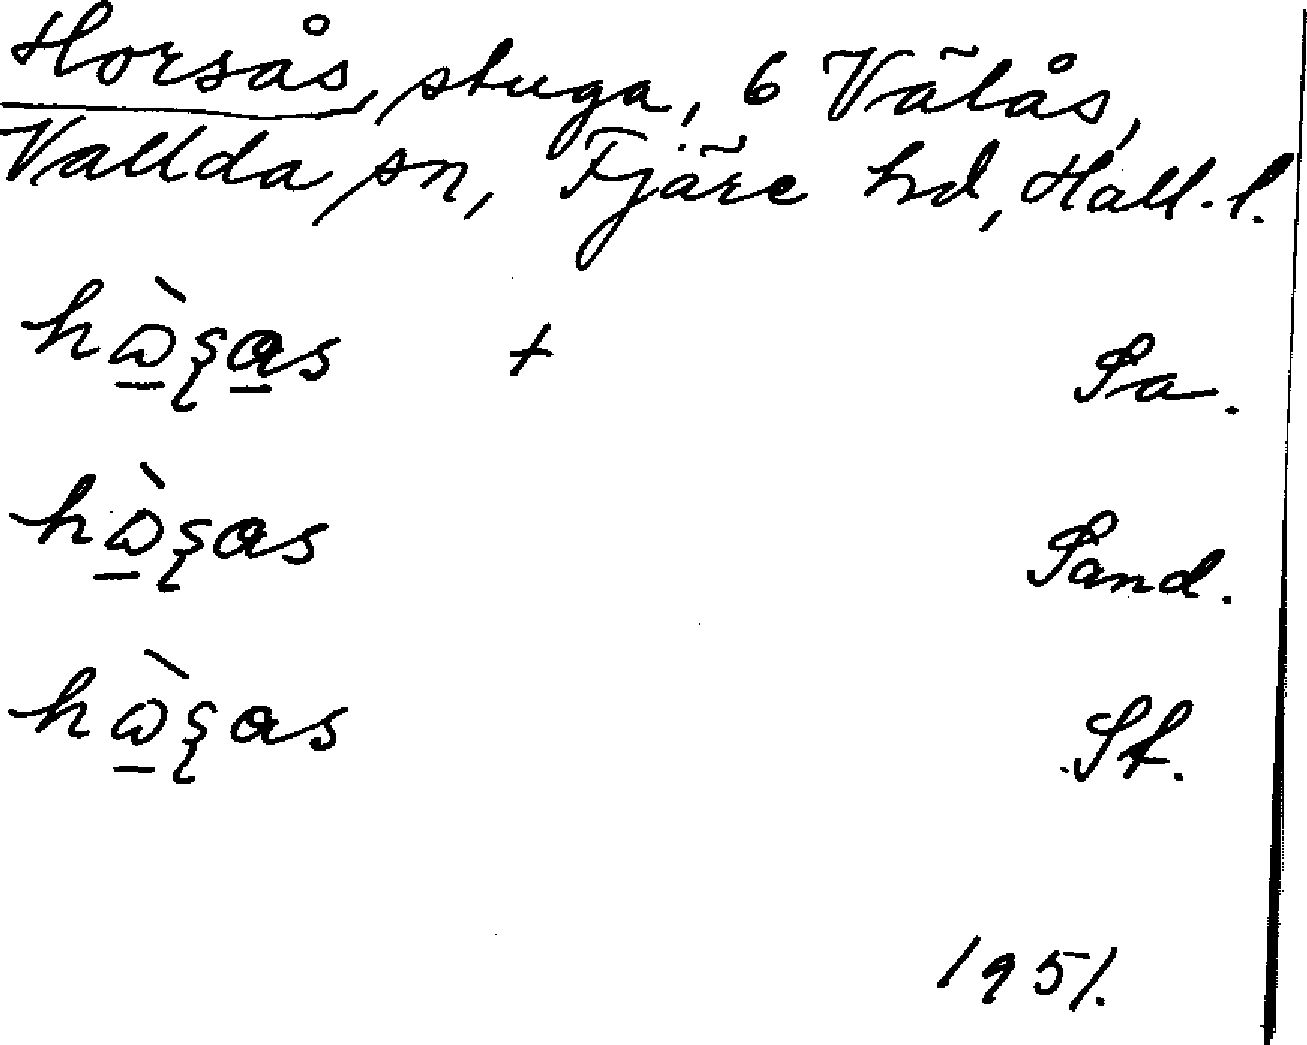 Horsås, stuga, 6 Välås,
Vallda sn, Fjäre hd, Hall. l.
hὼ̱ʂa̱s + Sa.
hὼ̱ʂas Sand.
hὼ̱ʂas St.
1951.